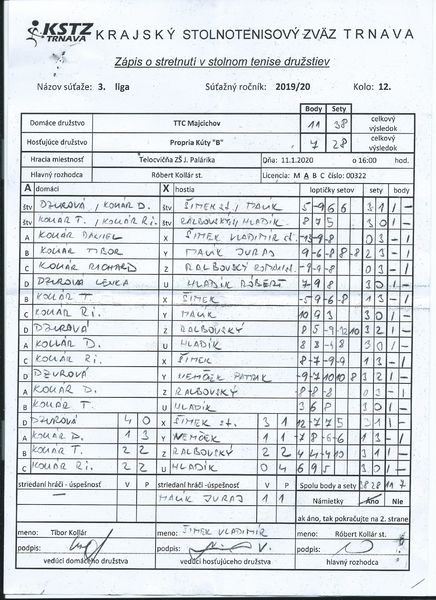 KSTZ TRNAVA KRAJSKÝ STOLNOTENISOVÝ ZVÄZ TRNAVA
Zápis o stretnutí v stolnom tenise družstiev
Názov súťaže: 3. liga Súťažný ročník: 2019/20 Kolo: 12.
Body Sety
Domáce družstvo TTC Majcichov 11 38 celkový výsledok
Hosťujúce družstvo Propria Kúty "B" 7 28 celkový výsledok
Hracia miestnosť Telocvičňa ZŠ J. Palárika Dňa: 11.1.2020 o 16:00 hod.
Hlavný rozhodca Róbert Kollár st. Licencia: M A B C číslo: 00322
A domáci X hostia loptičky setov sety body
štv DŽUROVÁ, KOLLÁR D. štv ŠIMEK st., MALÍK 5 -9 6 6 3 1 1 -
štv KOLLÁR T., KOLLÁR RI. štv RALBOVSKÝ, HLADÍK 8 7 5 3 0 1 -
A KOLLÁR DANIEL X ŠIMEK VLADIMÍR st. -13 -9 -8 0 3 - 1
B KOLLÁR TIBOR Y MALÍK JURAJ 9 -6 -8 8 -8 2 3 - 1
C KOLLÁR RICHARD Z RALBOVSKÝ -9 -8 0 3 - 1
D DŽUROVÁ LENKA U HLADÍK RÓBERT 7 9 8 3 0 1 -
B KOLLÁR T. X ŠIMEK -5 9 -6 -8 1 3 - 1
C KOLLÁR RI. Y MALÍK 10 9 3 3 0 1 -
D DŽUROVÁ Z RALBOVSKÝ 8 5 -9 -12 10 3 2 1 -
A KOLLÁR D. U HLADÍK 8 8 3 0 1 -
C KOLLÁR RI. X ŠIMEK 8 -7 -9 -9 1 3 - 1
D DŽUROVÁ Y NEMČEK PATRIK -9 -7 10 10 8 3 2 1 -
A KOLLÁR D. Z RALBOVSKÝ -8 -8 -8 0 3 - 1
B KOLLÁR T. U HLADÍK 3 6 8 3 0 1 -
D DŽUROVÁ 4 0 X ŠIMEK st. 3 1 -12 7 7 5 3 1 1 -
A KOLLÁR D. 1 3 Y NEMČEK 1 1 -7 8 -6 -6 1 3 - 1
B KOLLÁR T. 2 2 Z RALBOVSKÝ 2 2 4 4 -4 10 3 1 1 -
C KOLLÁR RI. 2 2 U HLADÍK 0 4 6 9 5 3 0 1 -
striedaní hráči - úspešnosť V P striedaní hráči - úspešnosť V P Spolu body a sety 38 28 11 7
MALÍK JURAJ 1 1 Námietky Áno Nie
ak áno, tak pokračujte na 2. strane
meno: Tibor Kollár meno: ŠIMEK VLADIMÍR meno: Róbert Kollár st.
podpis: podpis: podpis:
vedúci domáceho družstva vedúci hosťujúceho družstva hlavný rozhodca